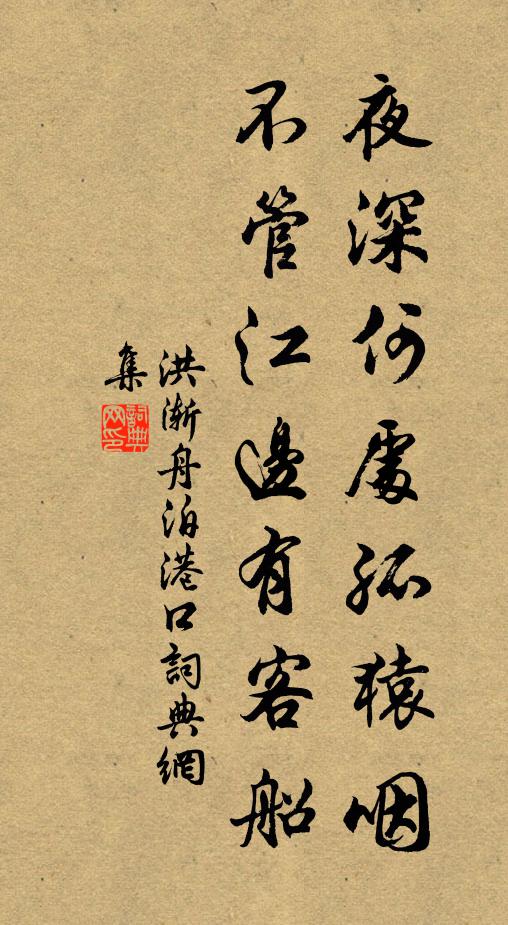 夜深何處孤猿咽
不管江邊有客船
洪漸舟泊港口詞典網
集
詞典
网印